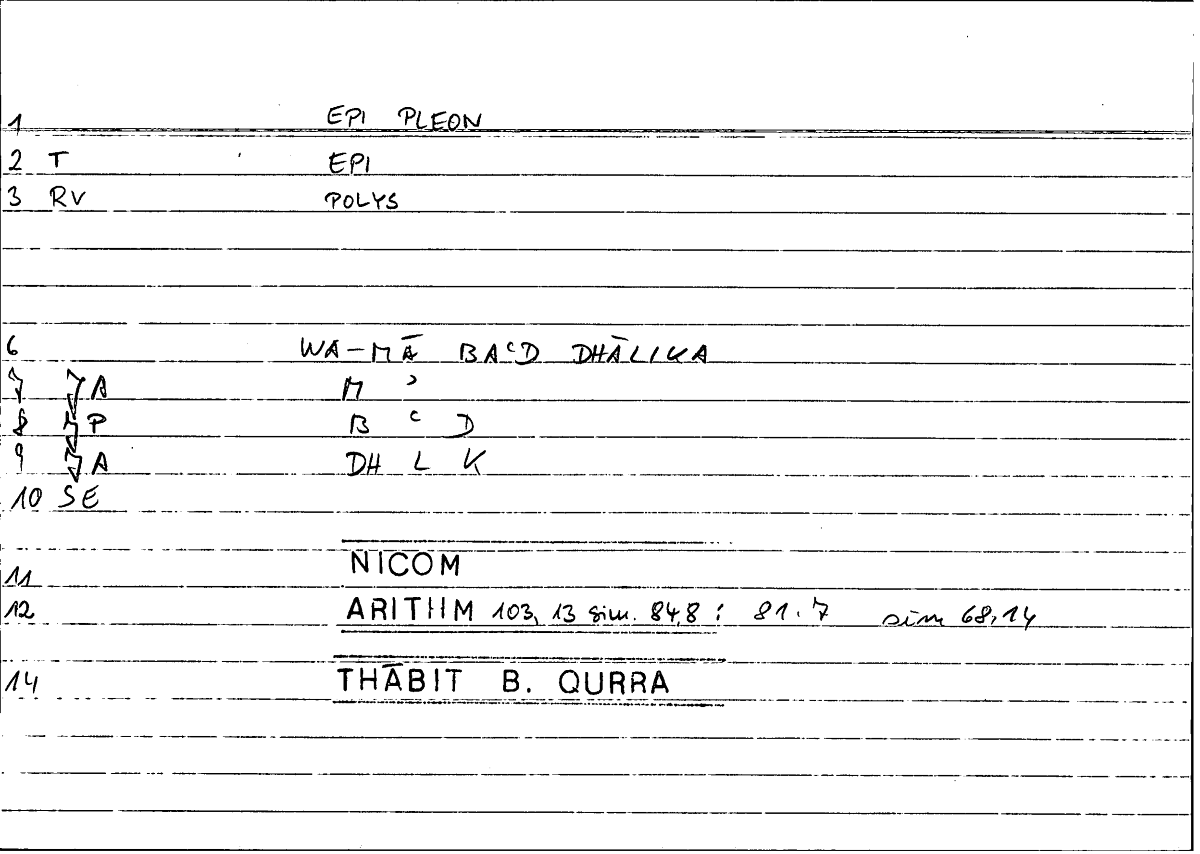 1 EPI PLEON
2 T EPI
3 RV POLYS
6 WA-MĀ BAᶜD DHĀLIKA
7 A M ʾ
8 P B ᶜ D
9 A DH L K
10 SE
11 NICOM
12 ARITHM 103, 13 sim. 84,8 : 81.7 sim 68,14
14 THĀBIT B. QURRA